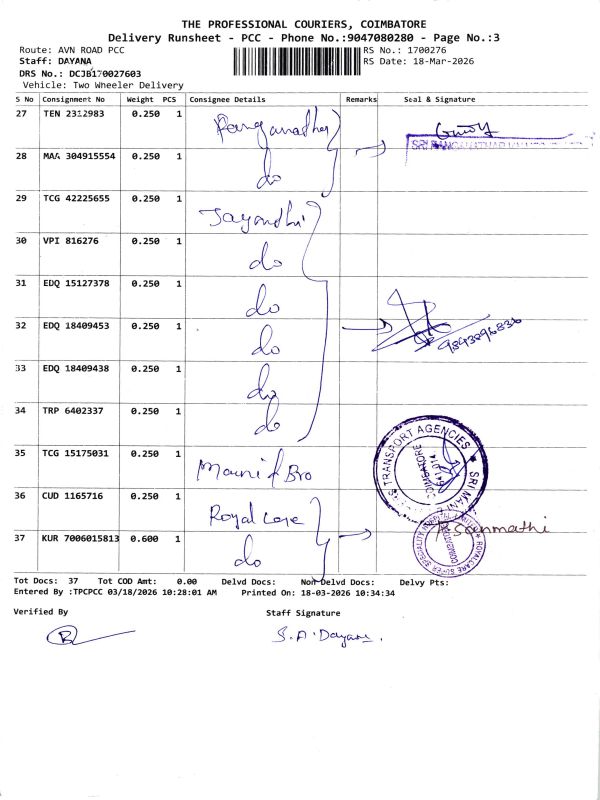 THE PROFESSIONAL COURIERS, COIMBATORE
Delivery Runsheet - PCC - Phone No.:9047080280 - Page No.:3
Route: AVN ROAD PCC RS No.: 1700276
Staff: DAYANA RS Date: 18-Mar-2026
DRS No.: DCJB170027603
Vehicle: Two Wheeler Delivery
S No Consignment No Weight PCS Consignee Details Remarks Seal & Signature
27 TEN 2312983 0.250 1 Ranganathar
28 MAA 304915554 0.250 1 do
29 TCG 42225655 0.250 1 Jayandhi
30 VPI 816276 0.250 1 do
31 EDQ 15127378 0.250 1 do
32 EDQ 18409453 0.250 1 do 9843896836
33 EDQ 18409438 0.250 1 do
34 TRP 6402337 0.250 1 do
35 TCG 15175031 0.250 1 Mani & Bro TRANSPORT AGENCIES ★ SRI MANI COIMBATORE
36 CUD 1165716 0.250 1 Royal Care Sanmathi
37 KUR 7006015813 0.600 1 do ROYALCARE SUPER SPECIALITY HOSPITAL COIMBATORE
Tot Docs: 37 Tot COD Amt: 0.00 Delvd Docs: Non Delvd Docs: Delvy Pts:
Entered By :TPCPCC 03/18/2026 10:28:01 AM Printed On: 18-03-2026 10:34:34
Verified By Staff Signature
S.A. Dayana